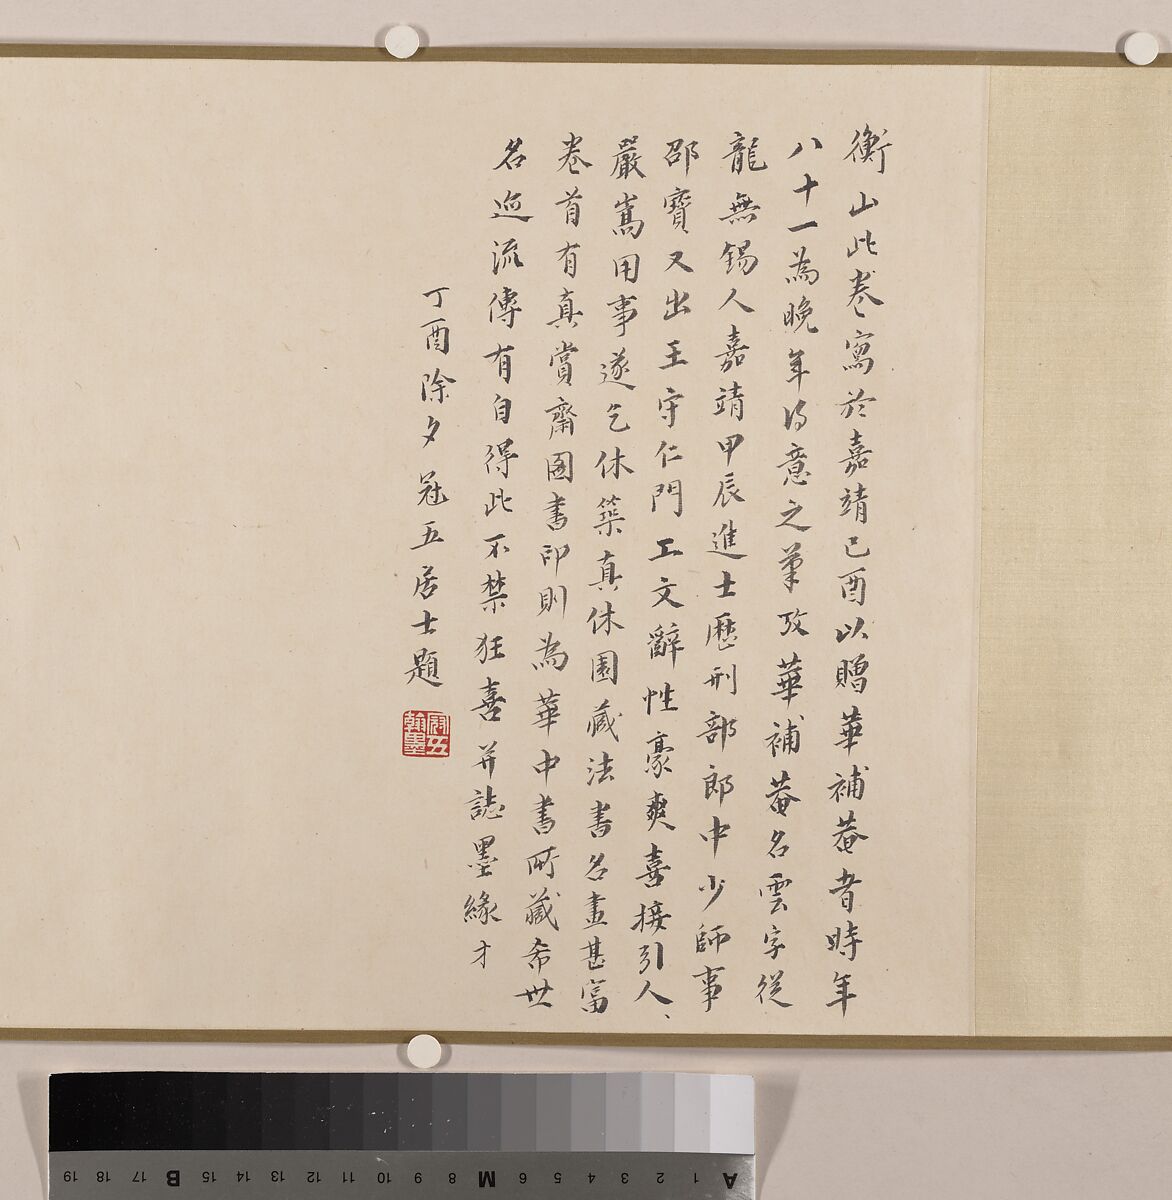 衡山此卷寫於嘉靖己酉以贈華補菴者時年
八十一為晚年得意之筆攷華補菴名雲字從
龍無錫人嘉靖甲辰進士歷刑部郎中少師事
邵寶又出王守仁門工文辭性豪爽喜接引人、
嚴嵩用事遂乞休築真休園藏法書名畫甚富
卷首有真賞齋圖書印則為華中書所藏希世
名迹流傳有自得此不禁狂喜并誌墨緣才
丁酉除夕冠五居士題
冠五
翰墨
A 1 2 3 4 5 6 M 8 9 10 11 12 13 14 15 B 17 18 19